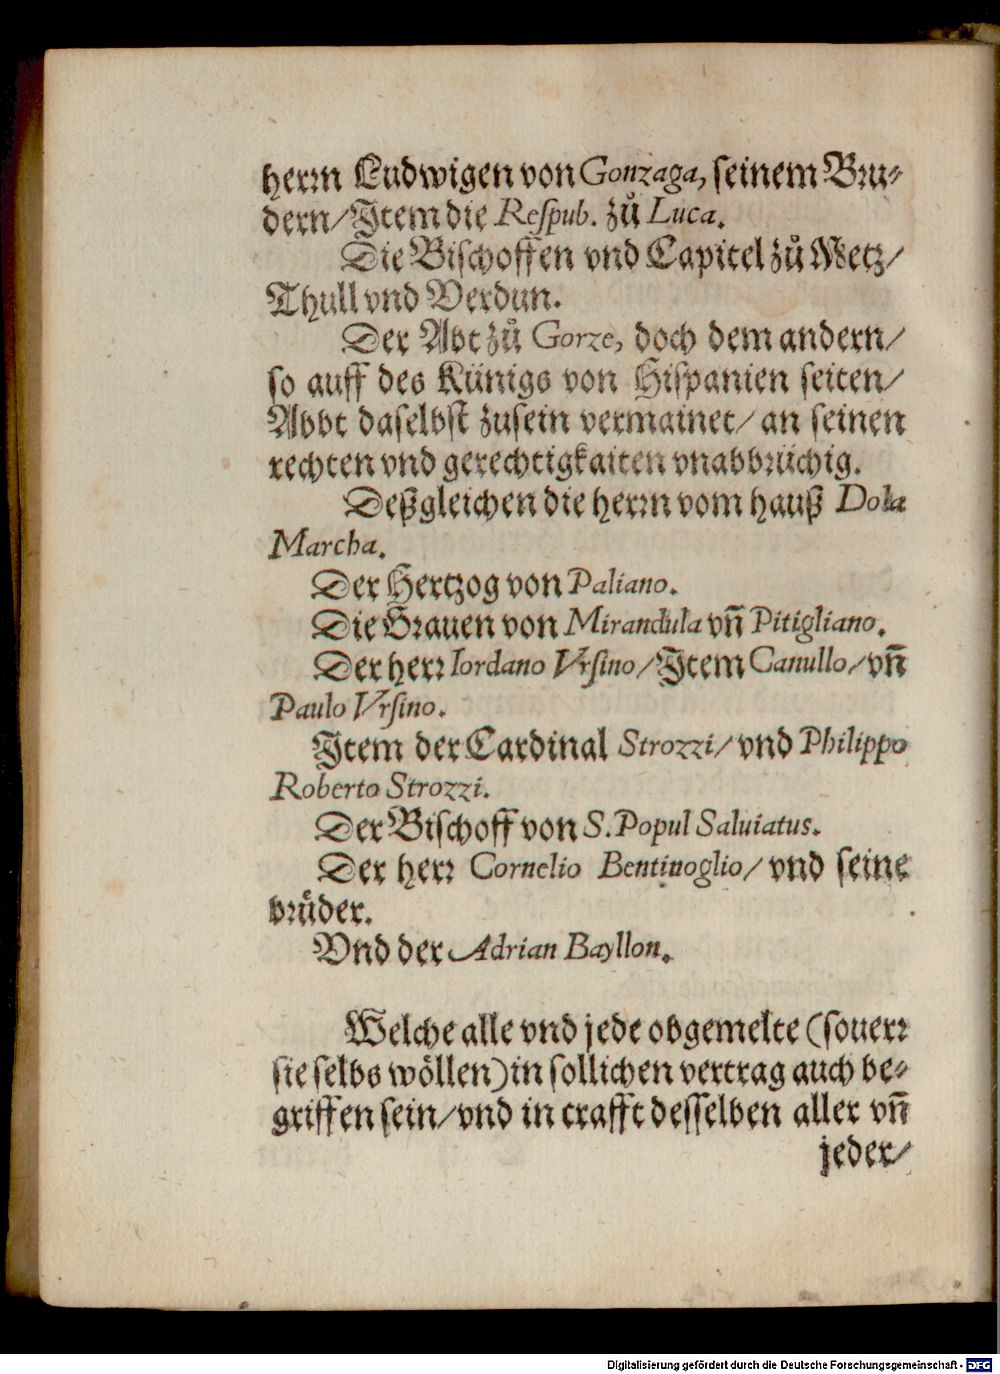 herꝛn Ludwigen von Gonzaga, seinem Bꝛu⸗
dern/ Item die Reſpub. zů Luca.
Die Bischoffen vnd Capitel zů Metz/
Thull vnd Verdun.
Der Abt zů Gorze, doch dem andern/
so auff des Künigs von Hispanien seiten/
Abbt daselbst zusein vermainet/ an seinen
rechten vnd gerechtigkaiten vnabbꝛüchig.
Deßgleichen die herꝛn vom hauß Dola
Marcha.
Der Hertzog von Paliano.
Die Grauen von Mirandula vn̄ Pitigliano.
Der herꝛ Iordano Vrſino/ Item Canullo/ vn̄
Paulo Vrſino.
Item der Cardinal Strozzi/ vnd Philippo
Roberto Strozzi.
Der Bischoff von S. Popul Saluiatus.
Der herꝛ Cornelio Bentiuoglio/ vnd seine
bꝛůder.
Vnd der Adrian Bayllon.
Welche alle vnd jede obgemelte (souerꝛ
sie selbs wöllen) in sollichen vertrag auch be⸗
griffen sein/ vnd in crafft desselben aller vn̄
jeder/
Digitalisierung gefördert durch die Deutsche Forschungsgemeinschaft - DFG